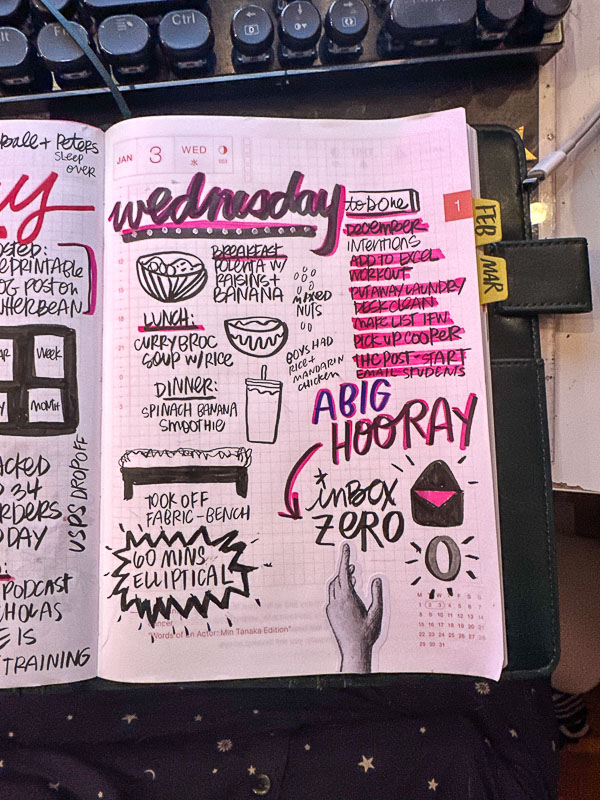 Ctrl
Peters
SLEEP
OVER
PRINTABLE
POST ON
WEEK
MONTH
USPS DROP OFF
34
DAY
PODCAST
IS
TRAINING
JAN 3 WED
水
wednesday
to DONE!
1
FEB
MAR
DECEMBER
INTENTIONS
ADD TO EXCEL
WORKOUT
PUT AWAY LAUNDRY
DESK CLEAN
MAKE LIST IFW
PICK UP COOPER
THC POST - START
EMAIL STUDENTS
BREAKFAST
POLENTA W/
RAISINS +
BANANA
MIXED
NUTS
LUNCH:
CURRY BROC
SOUP W/RICE
BOYS HAD
RICE +
MANDARIN
CHICKEN
DINNER:
SPINACH BANANA
SMOOTHIE
A BIG
HOORAY
*inBOX
ZERO
0
TOOK OFF
FABRIC - BENCH
60 MINS
ELLIPTICAL
"Words of an Actor: Min Tanaka Edition"